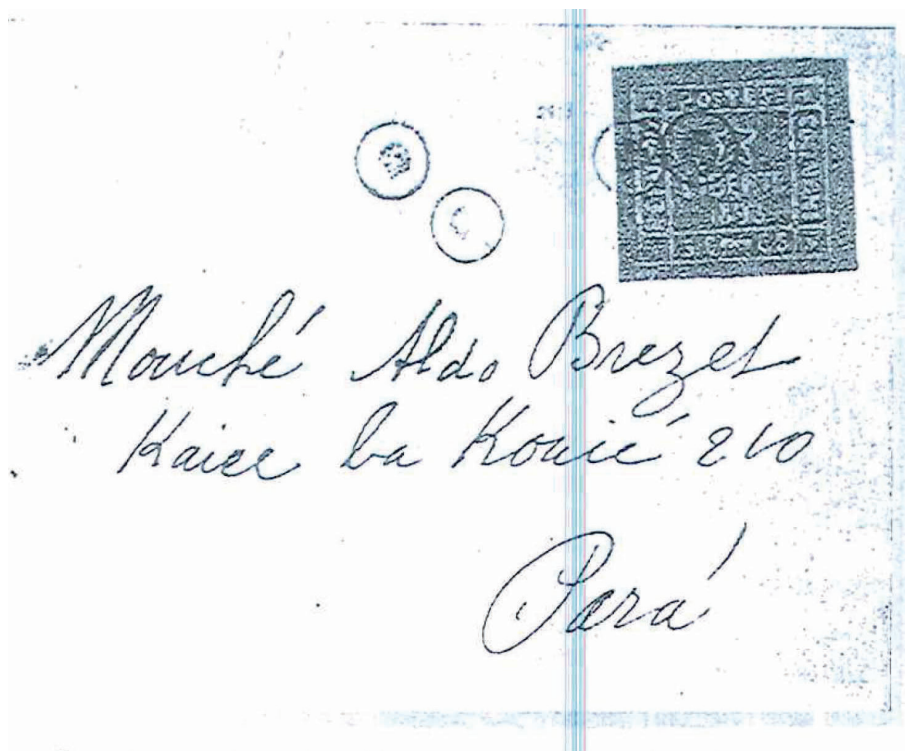 POSTES
Mouché Aldo Brezet
Kaice ba Kouié 210
Pará